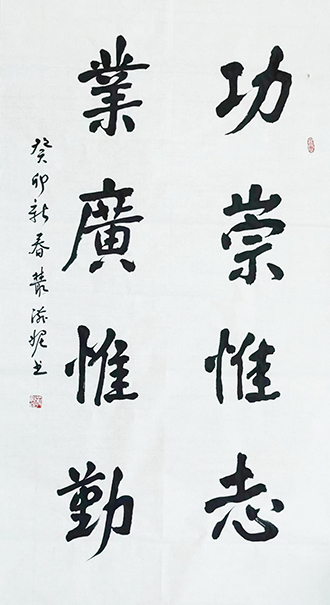 功崇惟志
業廣惟勤
癸卯新春